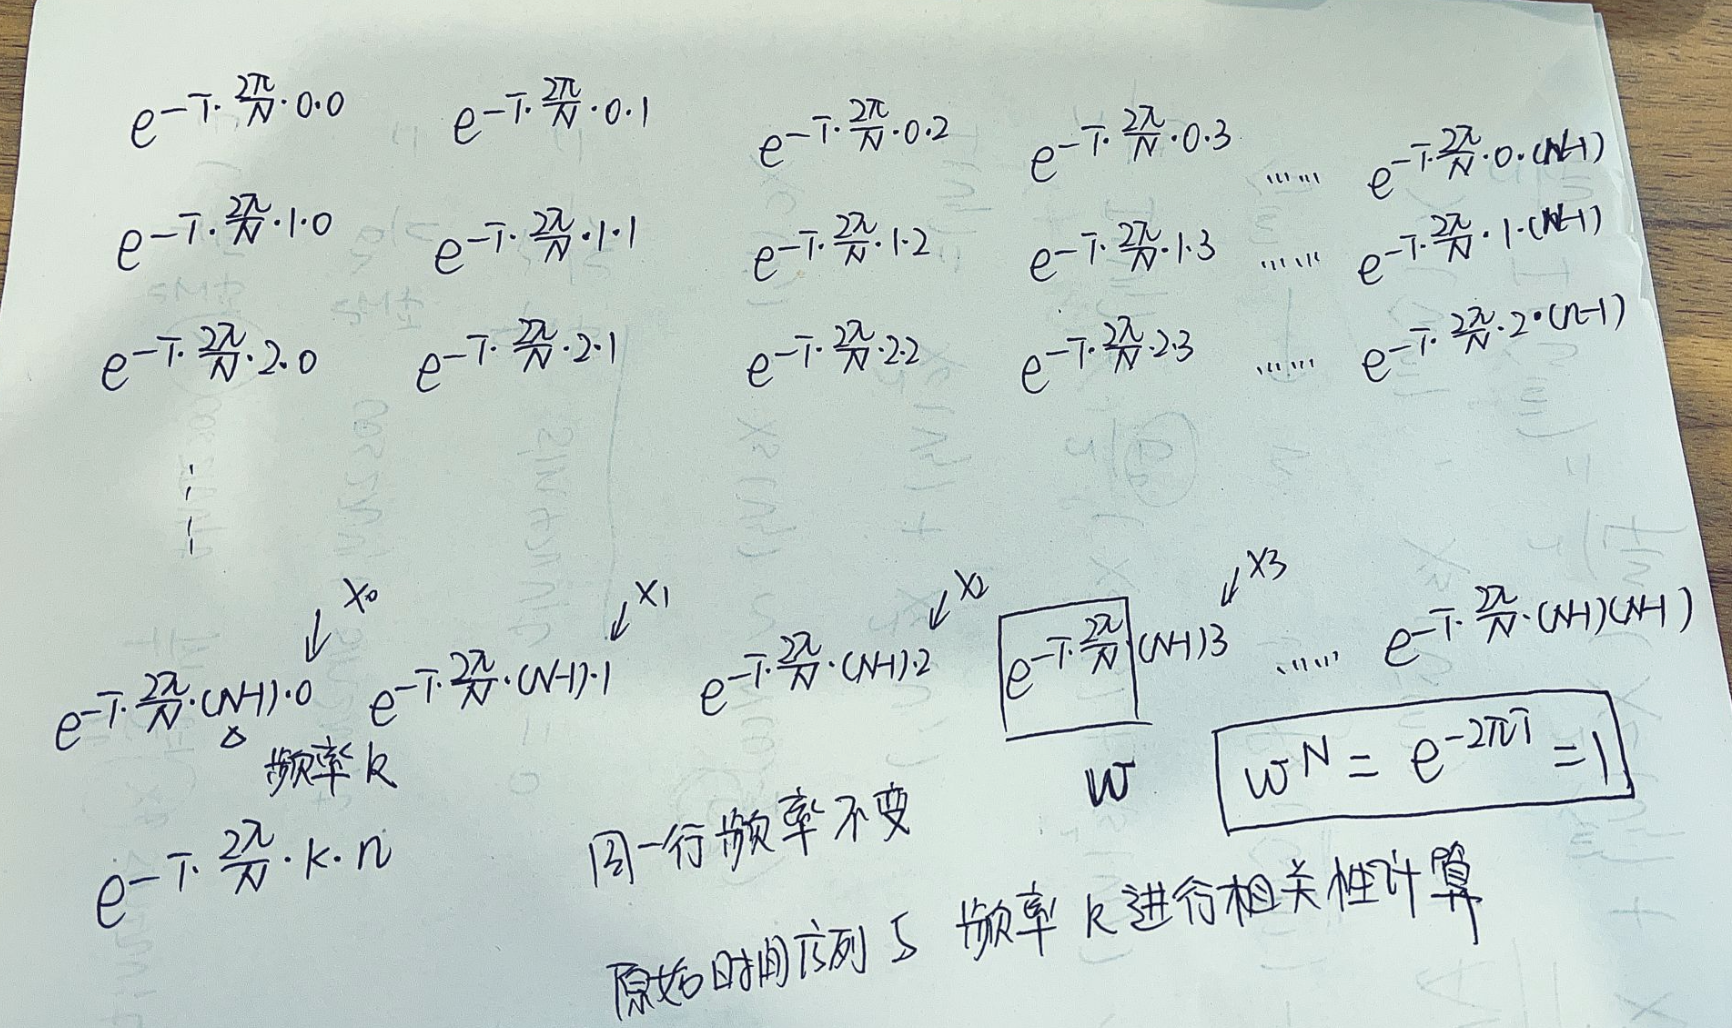 e^{-i·\frac{2π}{N}·0·0} e^{-i·\frac{2π}{N}·0·1} e^{-i·\frac{2π}{N}·0·2} e^{-i·\frac{2π}{N}·0·3} …… e^{-i·\frac{2π}{N}·0·(N-1)}
e^{-i·\frac{2π}{N}·1·0} e^{-i·\frac{2π}{N}·1·1} e^{-i·\frac{2π}{N}·1·2} e^{-i·\frac{2π}{N}·1·3} …… e^{-i·\frac{2π}{N}·1·(N-1)}
e^{-i·\frac{2π}{N}·2·0} e^{-i·\frac{2π}{N}·2·1} e^{-i·\frac{2π}{N}·2·2} e^{-i·\frac{2π}{N}·2·3} …… e^{-i·\frac{2π}{N}·2·(n-1)}
x₀ x₁ x₂ x₃
e^{-i·\frac{2π}{N}·(N-1)·0} e^{-i·\frac{2π}{N}·(N-1)·1} e^{-i·\frac{2π}{N}·(N-1)·2} e^{-i·\frac{2π}{N}·(N-1)3} …… e^{-i·\frac{2π}{N}·(N-1)(N-1)}
频率k
w
w^N = e^{-2πi} = 1
e^{-i·\frac{2π}{N}·k·n}
同一行频率不变
原始时间序列与 频率k进行相关性计算